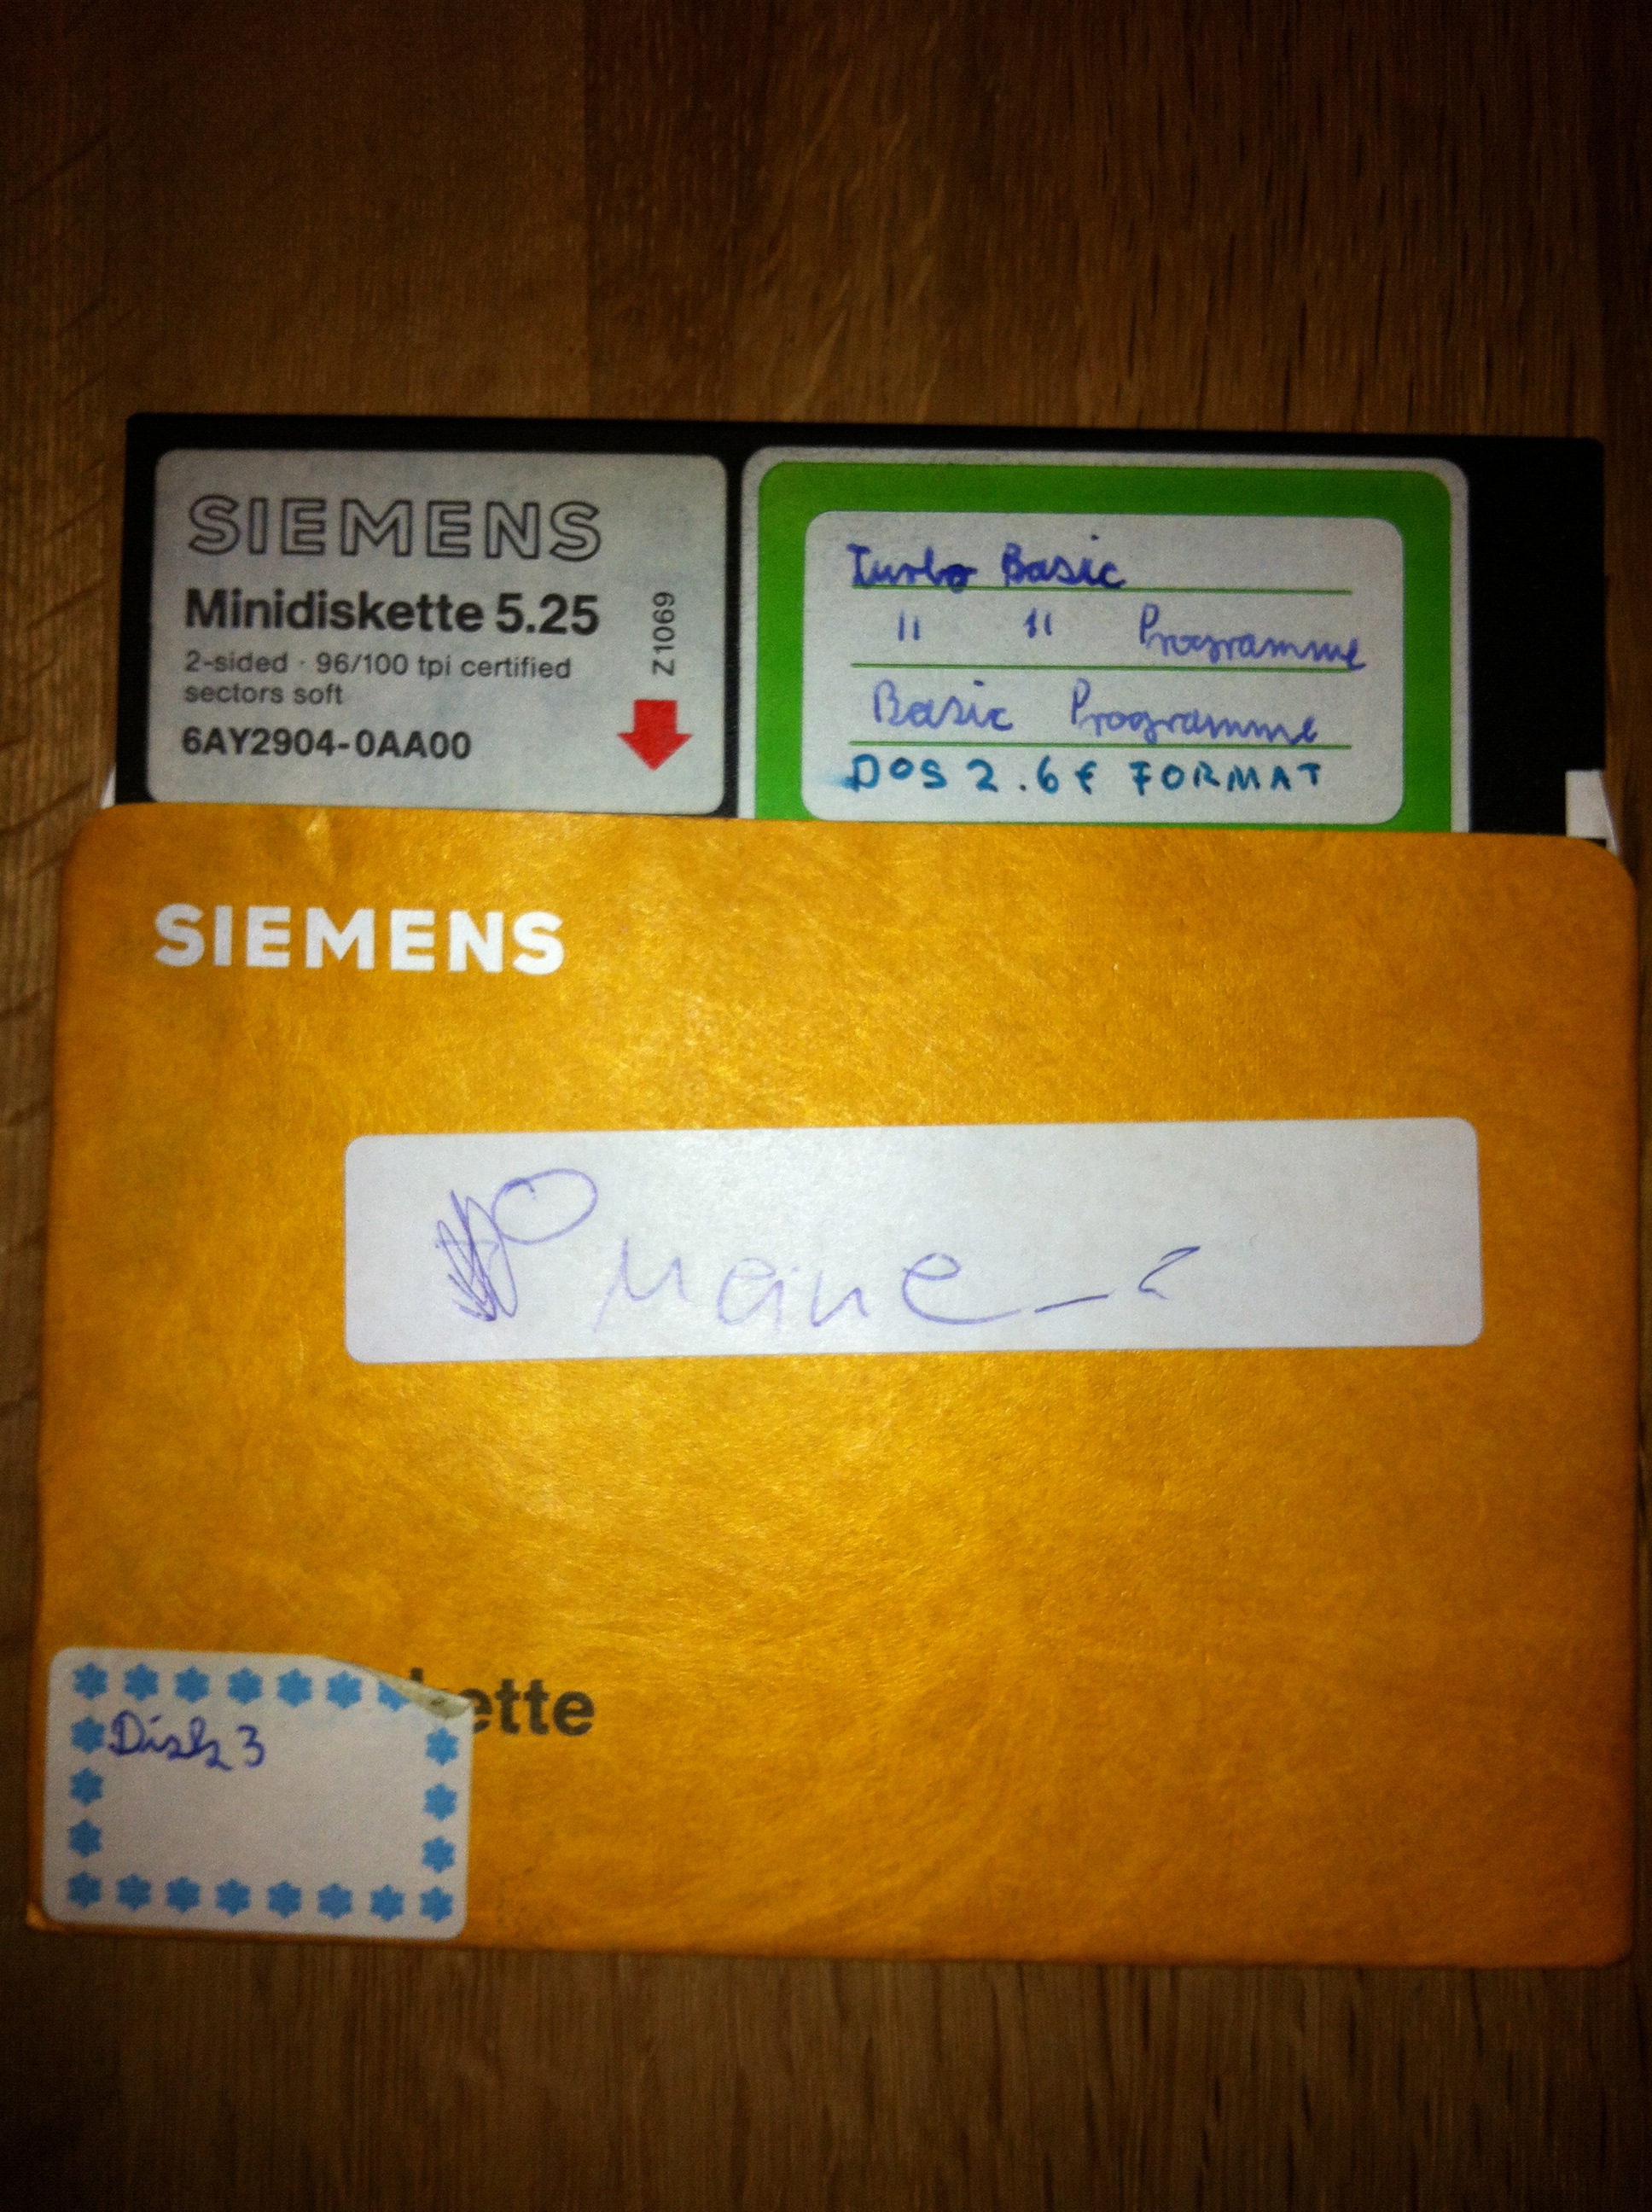 SIEMENS
Minidiskette 5.25
2-sided · 96/100 tpi certified
sectors soft
6AY2904-0AA00
Z1069
Turbo Basic
" " Programme
Basic Programme
DOS 2.6 FORMAT
SIEMENS
ette
Disk 3